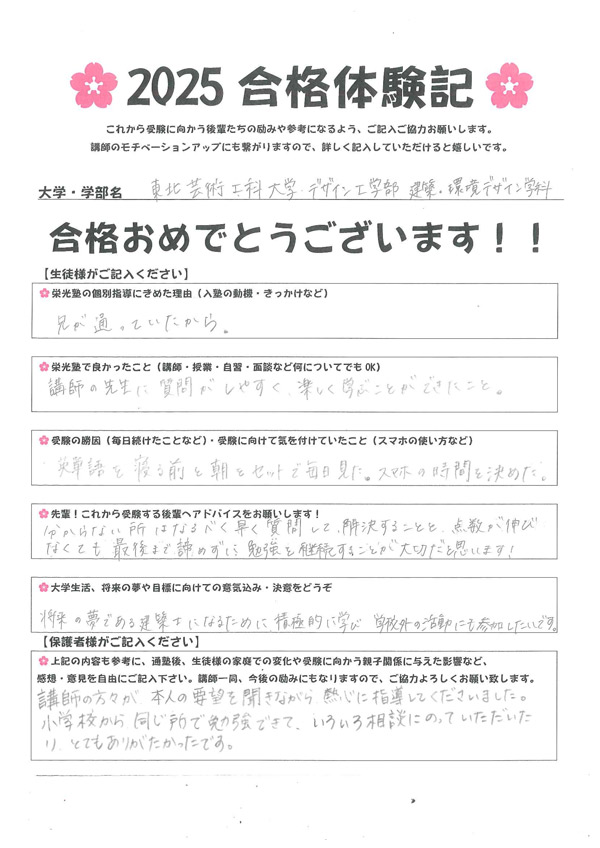 2025 合格体験記
これから受験に向かう後輩たちの励みや参考になるよう、ご記入ご協力お願いします。
講師のモチベーションアップにも繋がりますので、詳しく記入していただけると嬉しいです。
大学・学部名 東北芸術工科大学・デザイン工学部 建築・環境デザイン学科
合格おめでとうございます！！
【生徒様がご記入ください】
栄光塾の個別指導にきめた理由（入塾の動機・きっかけなど）
兄が通っていたから。
栄光塾で良かったこと（講師・授業・自習・面談など何についてでもOK）
講師の先生に質問がしやすく、楽しく学ぶことができたこと。
受験の勝因（毎日続けたことなど）・受験に向けて気を付けていたこと（スマホの使い方など）
英単語を寝る前と朝とセットで毎日見た。スマホの時間を決めた。
先輩！これから受験する後輩へアドバイスをお願いします！
分からない所はなるべく早く質問して、解決することと、点数が伸び
なくても最後まで諦めずに勉強を継続することが大切だと思います！
大学生活、将来の夢や目標に向けての意気込み・決意をどうぞ
将来の夢である建築士になるために積極的に学び 学校外の活動にも参加したいです。
【保護者様がご記入ください】
上記の内容も参考に、通塾後、生徒様の家庭での変化や受験に向かう親子関係に与えた影響など、
感想・意見を自由にご記入下さい。講師一同、今後の励みにもなりますので、ご協力よろしくお願い致します。
講師の方々が 本人の要望を聞きながら 熱心に指導してくださいました。
小学校から同じ所で勉強できて、いろいろ相談にのっていただいた
り、とてもありがたかったです。